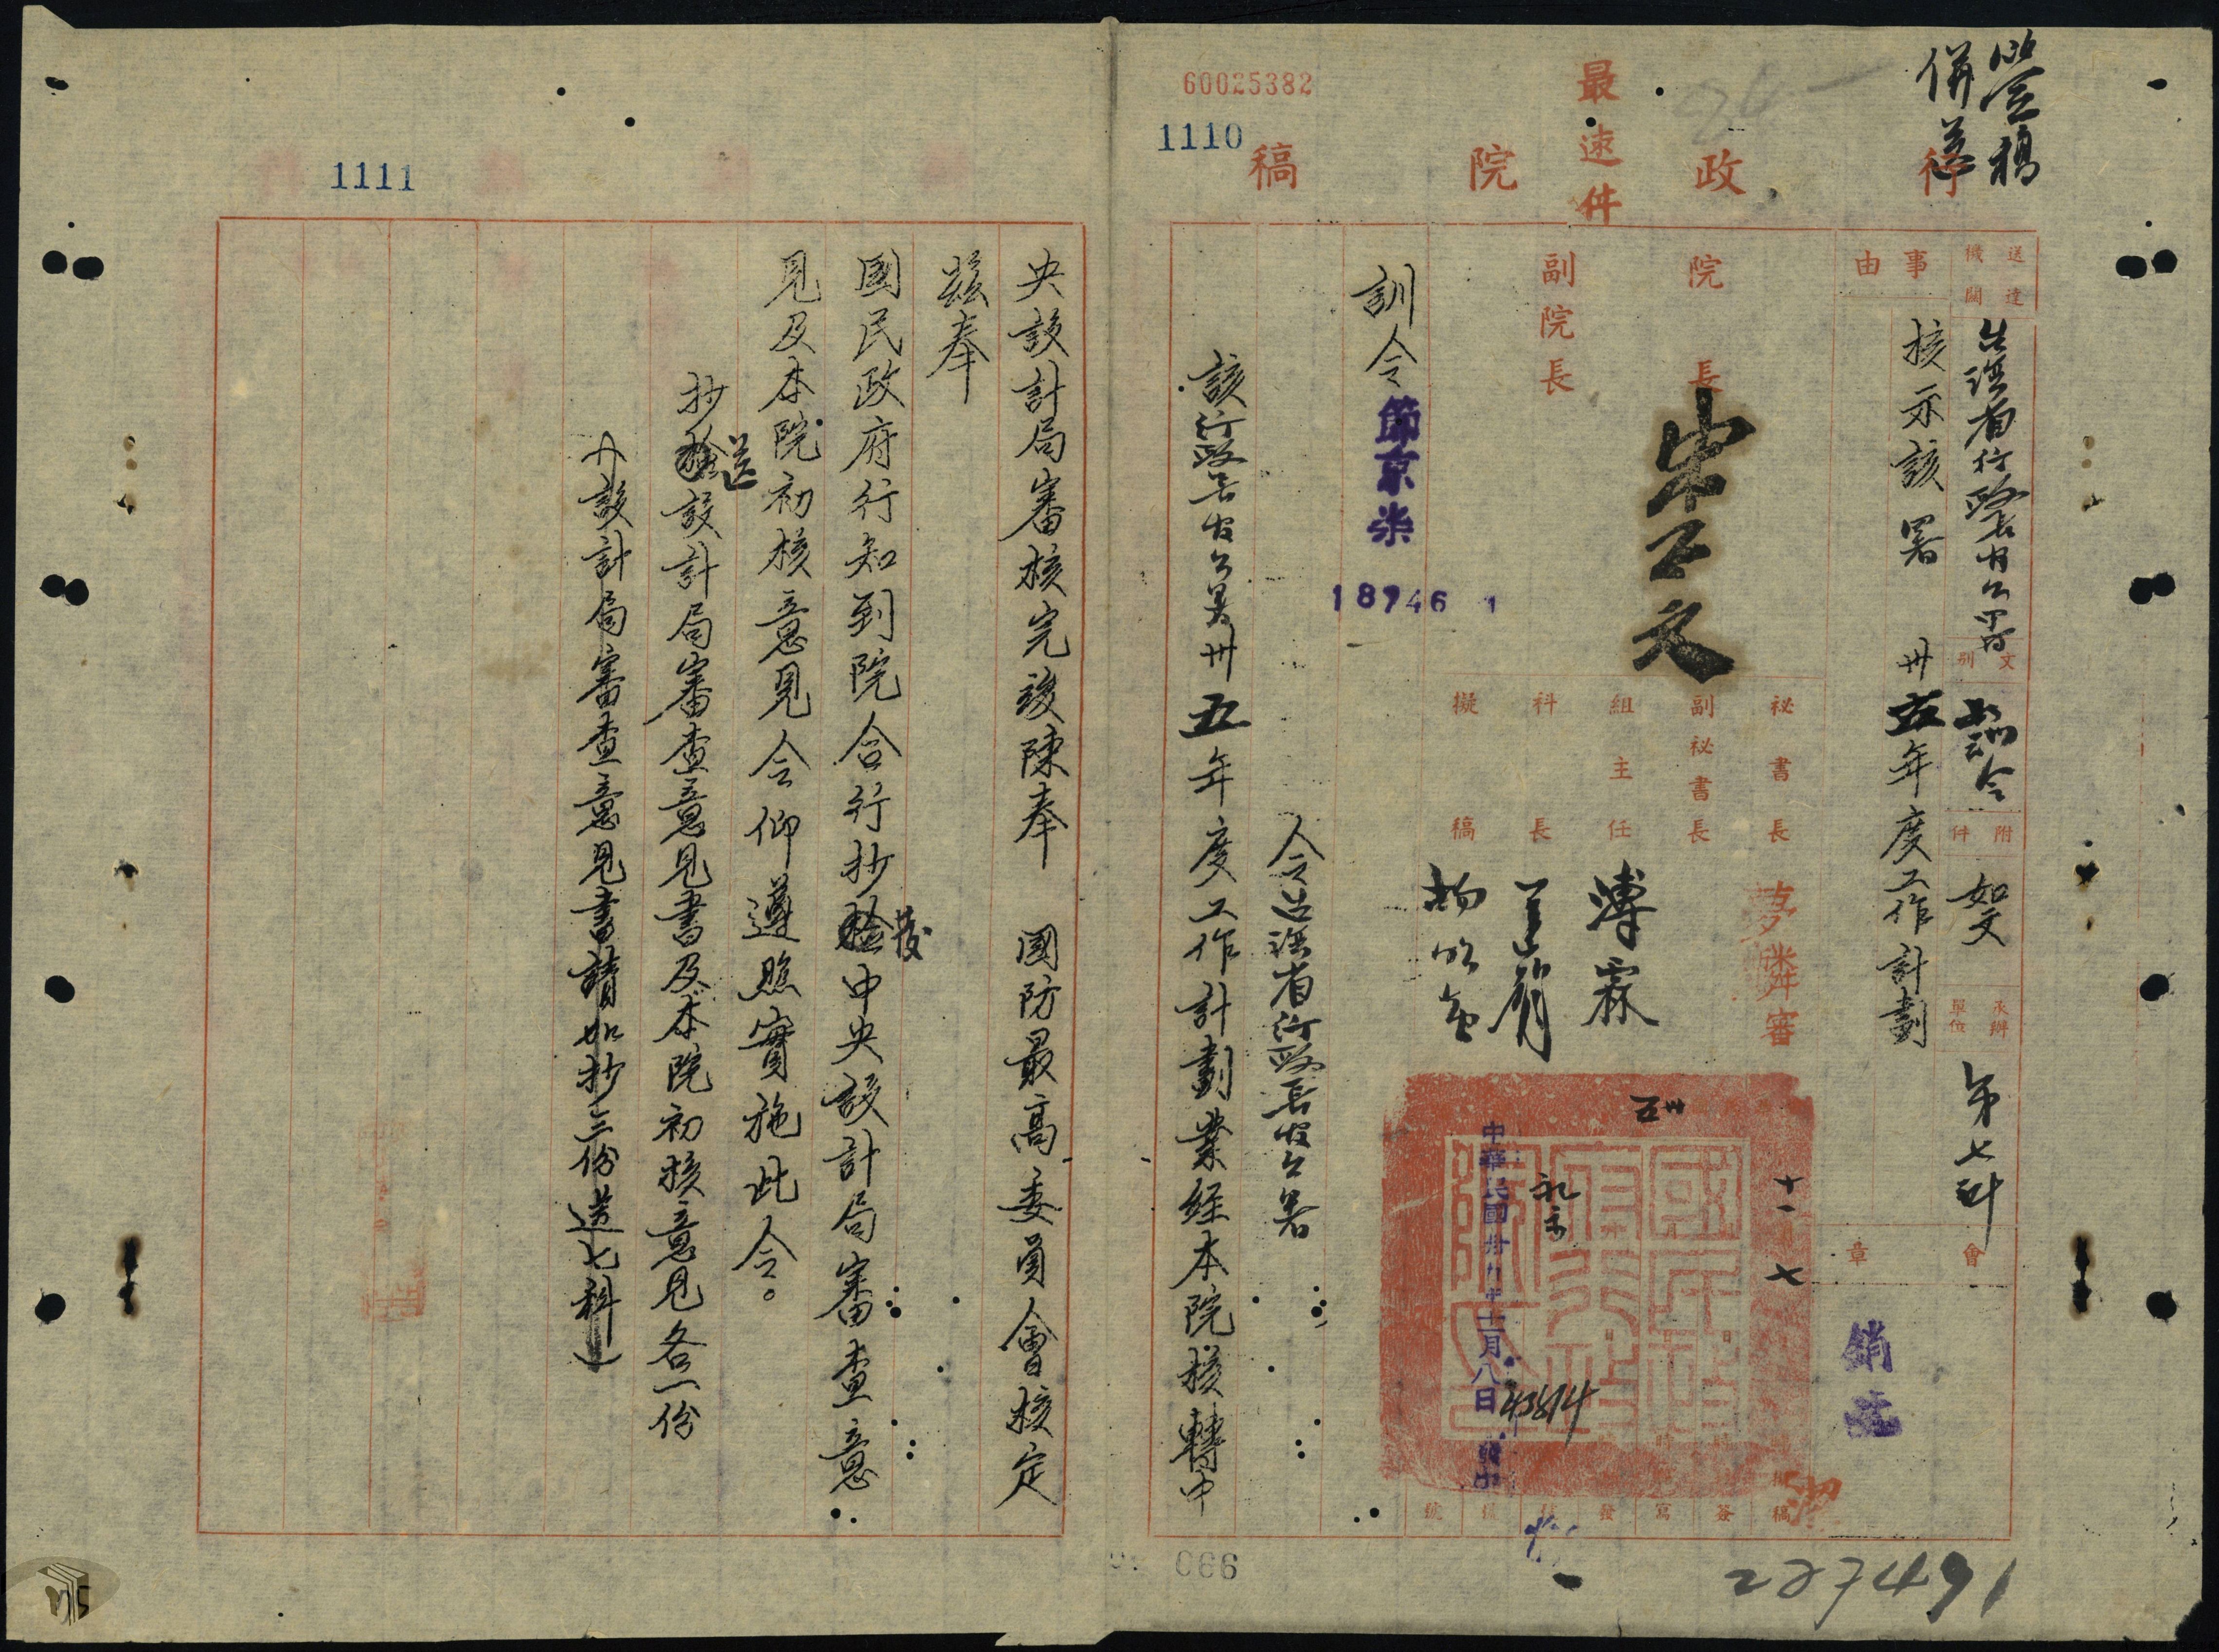 簽稿
併送
60025382
1110
最速件
行政院稿
送達機關
台灣省行政長官公署
文別
訓令
附件
如文
承辦單位
第七科
事由
核示該署卅五年度工作計劃
會章
銷
院長
宋子文
副院長
祕書長
夢麟審
副祕書長
組主任
科長
擬稿
十一 七
中華民國卅五年十一月八日
43614
訓令 節京柒 18746 1
令台灣省行政長官公署
該行政長官公署卅五年度工作計劃業經本院核轉中
227491
066
1111
央設計局審核完竣陳奉 國防最高委員會核定
茲奉
國民政府行知到院合行抄發中央設計局審查意
見及本院初核意見令仰遵照實施此令。
抄送設計局審查意見書及本院初核意見各一份
(設計局審查意見書請如抄三份送七科)